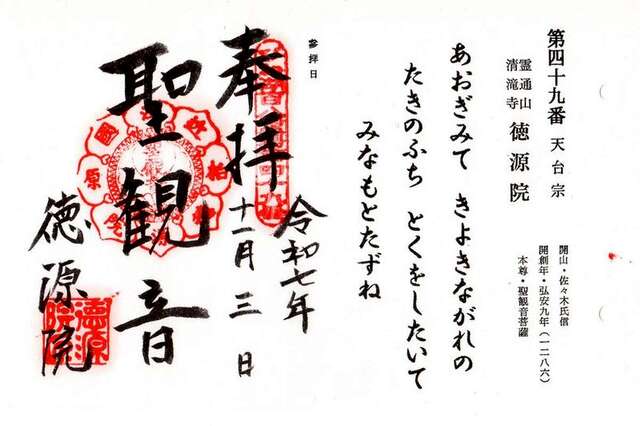 第四十九番 天台宗
霊通山
清滝寺 徳源院
開山・佐々木氏信
開創年・弘安九年(一二八六)
本尊・聖観音菩薩
あおぎみて きよきながれの
たきのふち とくをしたいて
みなもとたずね
参拝日
奉拝
令和七年
十一月三日
聖観音
徳源院
徳源院